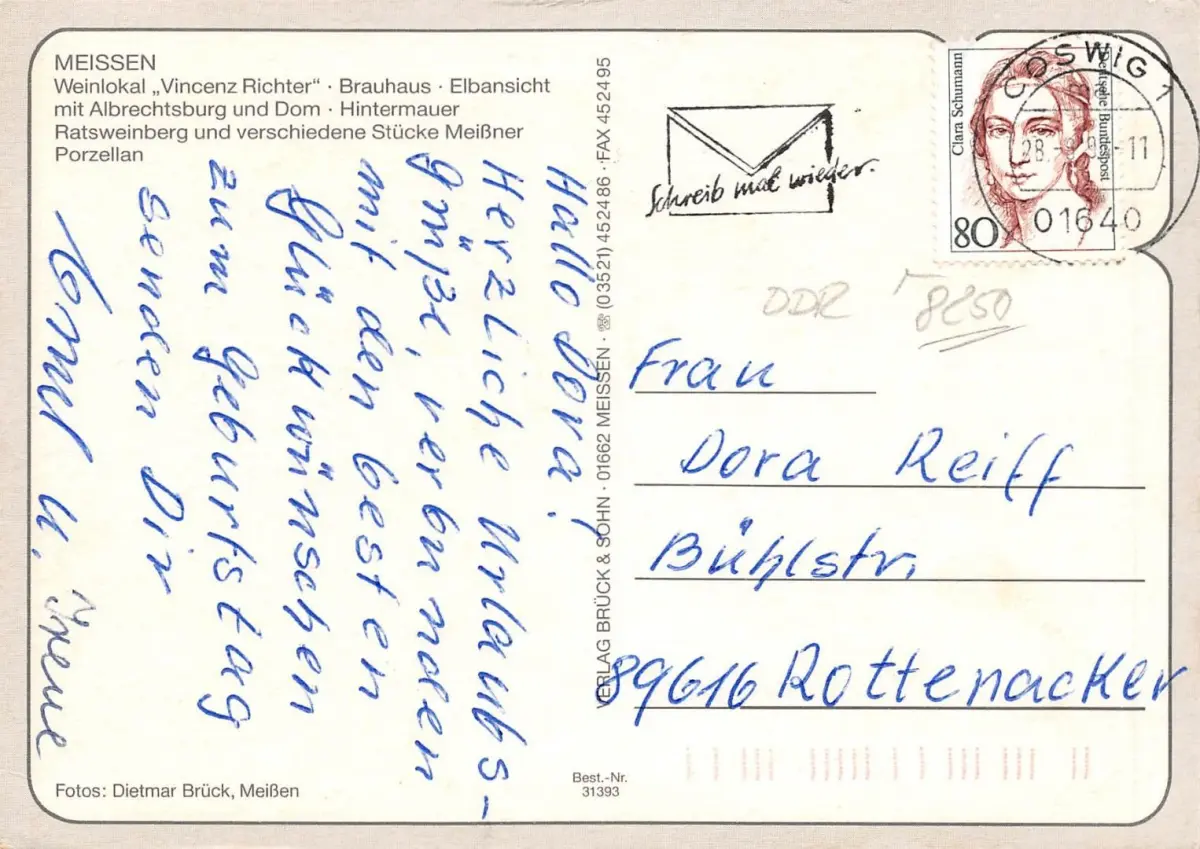 MEISSEN
Weinlokal „Vincenz Richter“ · Brauhaus · Elbansicht
mit Albrechtsburg und Dom · Hintermauer
Ratsweinberg und verschiedene Stücke Meißner
Porzellan
Hallo Dora!
Herzliche Urlaubs-
grüße, verbunden
mit den besten
Glückwünschen
zum Geburtstag
senden Dir
u. Irene
Fotos: Dietmar Brück, Meißen
VERLAG BRÜCK & SOHN · 01662 MEISSEN · ☏ (03521) 452486 · FAX 452495
Best.-Nr.
31393
Schreib mal wieder.
Clara Schumann
Deutsche Bundespost
80
COSWIG 1
-11
01640
DDR 8250
Frau
Dora Reiff
Bühlstr.
89616 Rottenacker